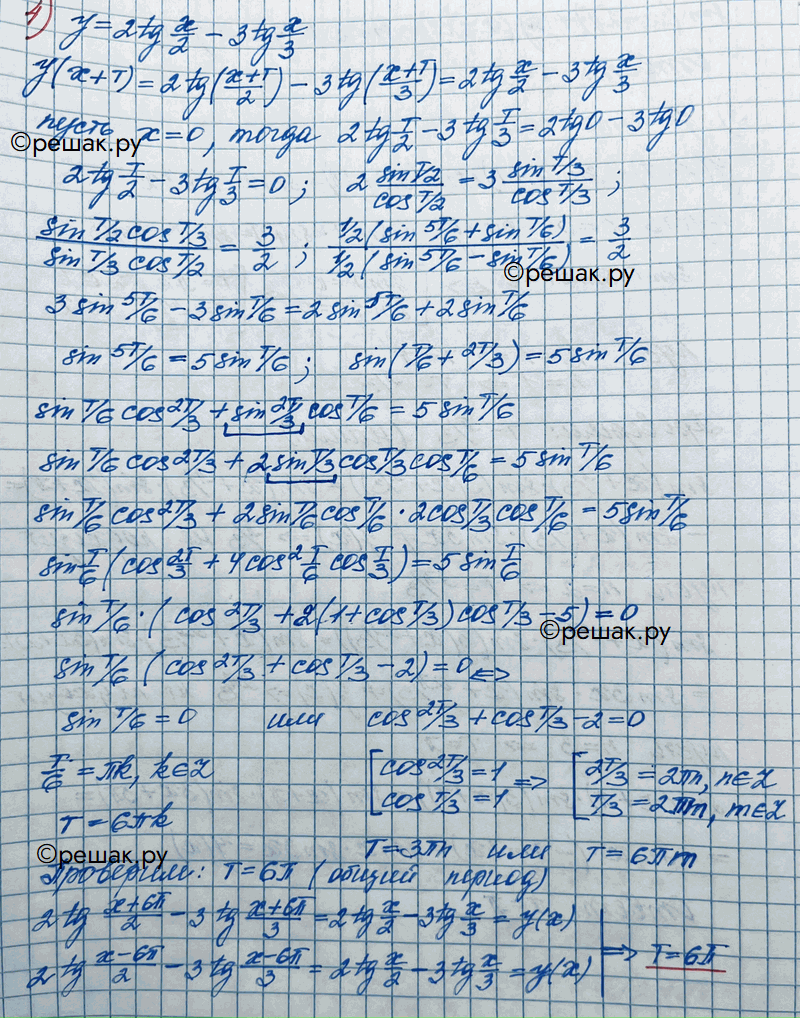 4) y = 2tg x/2 - 3tg x/3
y(x+T) = 2tg((x+T)/2) - 3tg((x+T)/3) = 2tg x/2 - 3tg x/3
пусть x=0, тогда 2tg T/2 - 3tg T/3 = 2tg0 - 3tg0
©решак.ру
2tg T/2 - 3tg T/3 = 0 ; 2 sin T/2 / cos T/2 = 3 sin T/3 / cos T/3 ;
sin T/2 cos T/3 / sin T/3 cos T/2 = 3/2 ; 1/2(sin 5T/6 + sin T/6) / 1/2(sin 5T/6 - sin T/6) = 3/2
©решак.ру
3 sin 5T/6 - 3 sin T/6 = 2 sin 5T/6 + 2 sin T/6
sin 5T/6 = 5 sin T/6 ; sin(T/6 + 2T/3) = 5 sin T/6
sin T/6 cos 2T/3 + sin 2T/3 cos T/6 = 5 sin T/6
sin T/6 cos 2T/3 + 2 sin T/3 cos T/3 cos T/6 = 5 sin T/6
sin T/6 cos 2T/3 + 2 sin T/6 cos T/6 · 2 cos T/3 cos T/6 = 5 sin T/6
sin T/6 (cos 2T/3 + 4 cos² T/6 cos T/3) = 5 sin T/6
sin T/6 · (cos 2T/3 + 2(1 + cos T/3) cos T/3 - 5) = 0
©решак.ру
sin T/6 (cos 2T/3 + cos T/3 - 2) = 0 <=>
sin T/6 = 0 или cos 2T/3 + cos T/3 - 2 = 0
T/6 = πk, k∈Z [cos 2T/3 = 1 => [2T/3 = 2πn, n∈Z
T = 6πk cos T/3 = 1 T/3 = 2πm, m∈Z
T = 3πn или T = 6πm
©решак.ру
Проверим: T = 6π (общий период)
2tg (x+6π)/2 - 3tg (x+6π)/3 = 2tg x/2 - 3tg x/3 = y(x)
2tg (x-6π)/2 - 3tg (x-6π)/3 = 2tg x/2 - 3tg x/3 = y(x) => T = 6π